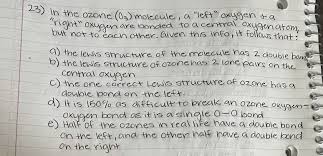 23) In the ozone (O₃) molecule, a "left" oxygen + a
"right" oxygen are bonded to a central oxygen atom,
but not to each other. Given this info, it follows that:
a) the lewis structure of the molecule has 2 double bonds
b) the lewis structure of ozone has 2 lone pairs on the
central oxygen
c) the one correct Lewis structure of ozone has a
double bond on the left.
d) It is 150% as difficult to break an ozone oxygen-
oxygen bond as it is a single O-O bond
e) Half of the ozones in real life have a double bond
on the left, and the other half have a double bond
on the right